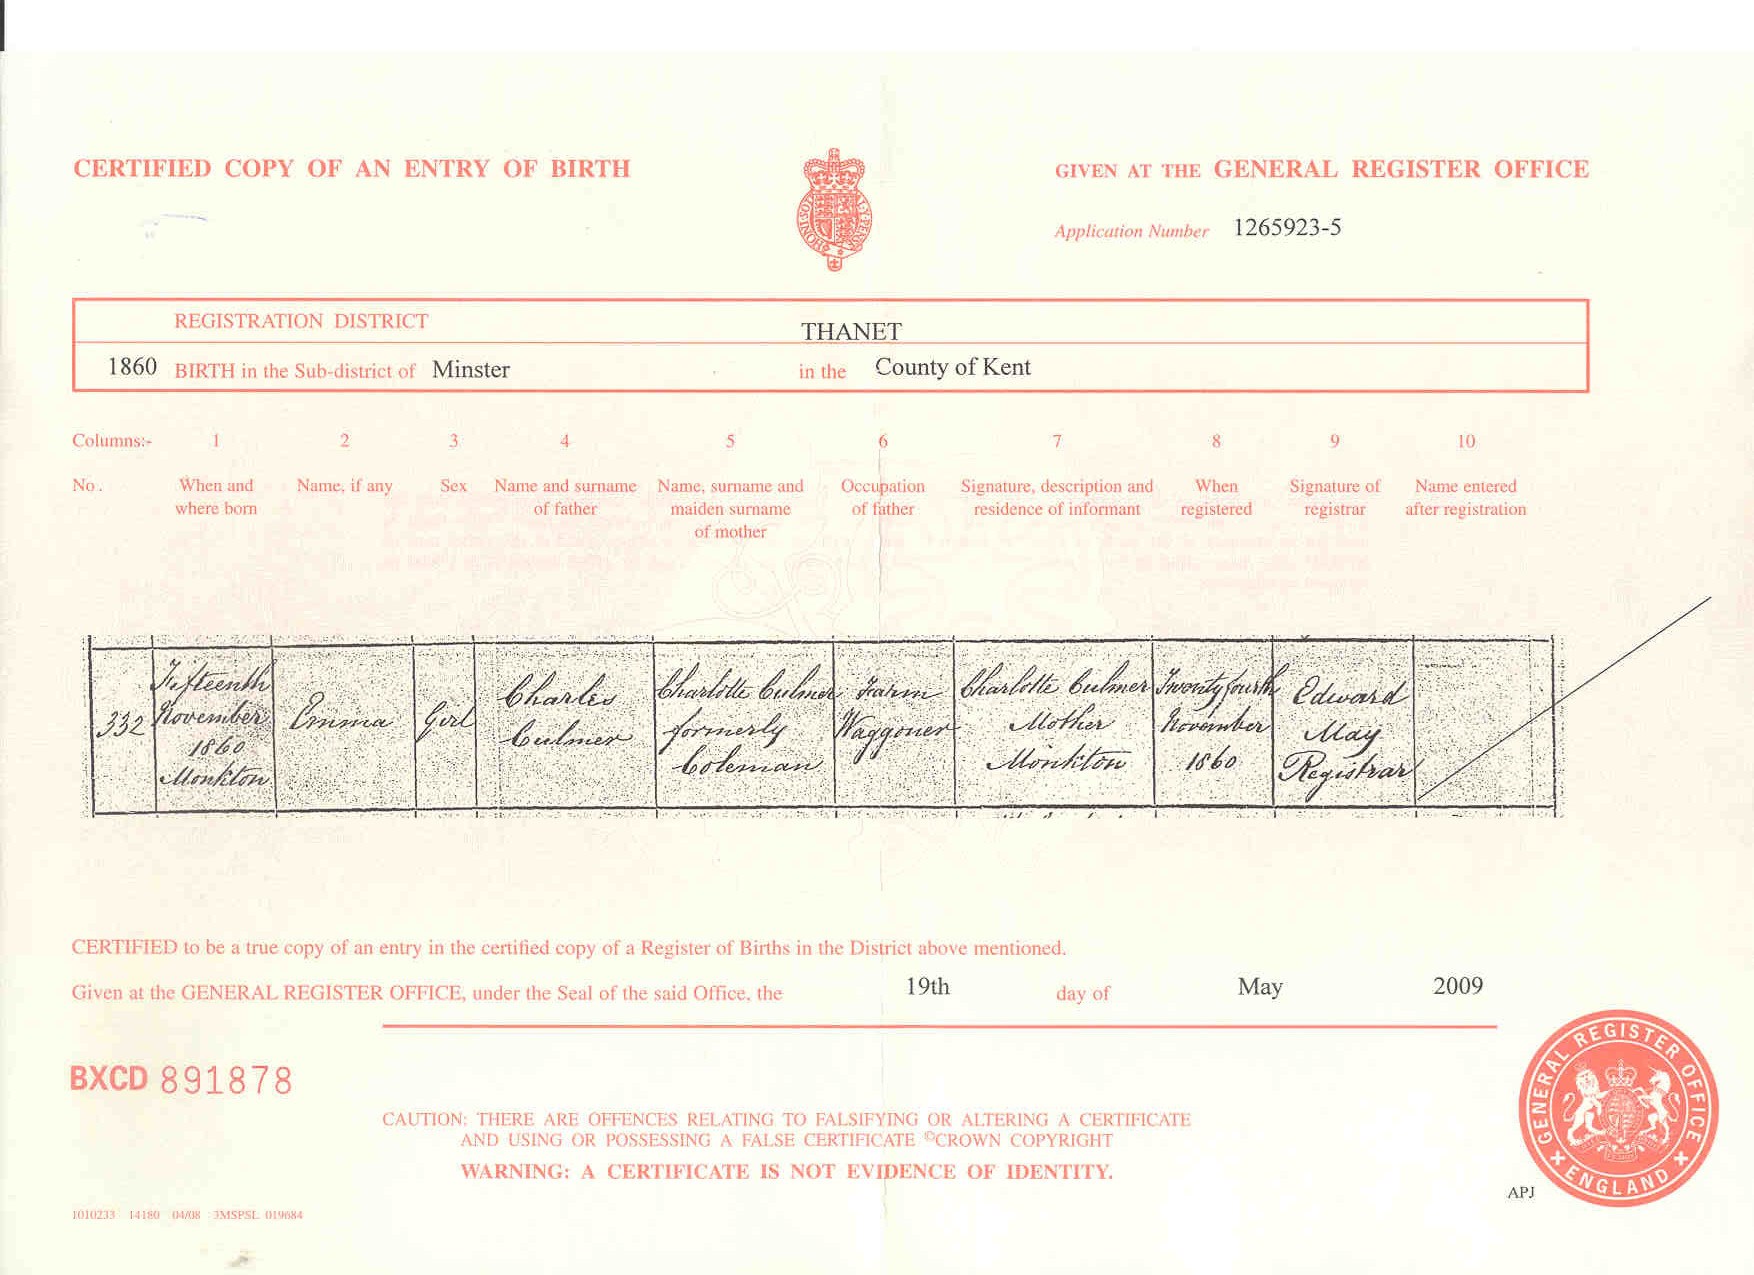 CERTIFIED COPY OF AN ENTRY OF BIRTH
GIVEN AT THE GENERAL REGISTER OFFICE
Application Number 1265923-5
REGISTRATION DISTRICT THANET
1860 BIRTH in the Sub-district of Minster in the County of Kent
Columns:- 1 2 3 4 5 6 7 8 9 10
No. When and where born
Name, if any
Sex
Name and surname of father
Name, surname and maiden surname of mother
Occupation of father
Signature, description and residence of informant
When registered
Signature of registrar
Name entered after registration
332
Fifteenth
November
1860
Monkton
Emma
Girl
Charles
Culmer
Charlotte Culmer
formerly
Coleman
Farm
Waggoner
Charlotte Culmer
Mother
Monkton
Twenty fourth
November
1860
Edward
May
Registrar
CERTIFIED to be a true copy of an entry in the certified copy of a Register of Births in the District above mentioned.
Given at the GENERAL REGISTER OFFICE, under the Seal of the said Office, the 19th day of May 2009
BXCD 891878
CAUTION: THERE ARE OFFENCES RELATING TO FALSIFYING OR ALTERING A CERTIFICATE
AND USING OR POSSESSING A FALSE CERTIFICATE ©CROWN COPYRIGHT
WARNING: A CERTIFICATE IS NOT EVIDENCE OF IDENTITY.
GENERAL REGISTER OFFICE
ENGLAND
APJ
1010233 14180 04/08 3MSPSL 019684